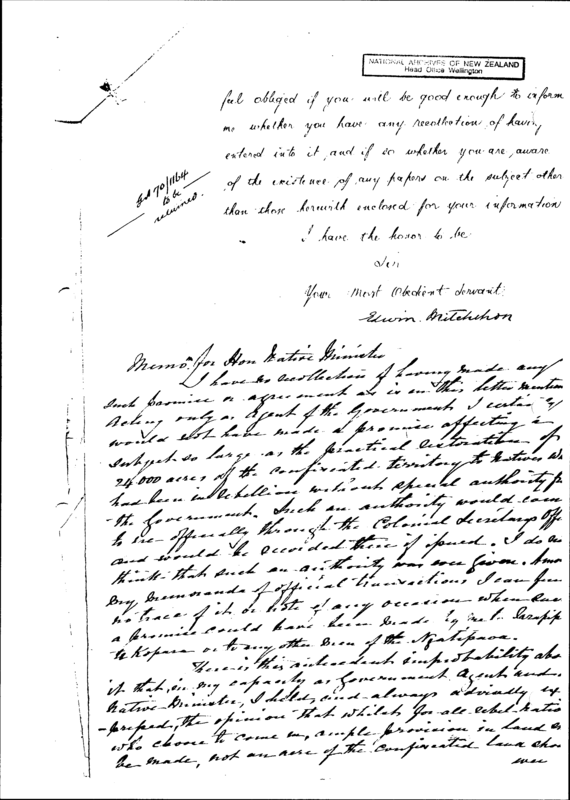 NATIONAL ARCHIVES OF NEW ZEALAND
Head Office Wellington
feel obliged if you will be good enough to inform
me whether you have any recollection of having
entered into it, and if so whether you are aware
of the existence of any papers on the subject other
than those herewith enclosed for your information
70/1164
to be
returned.
I have the honor to be
Sir
Your Most Obedient Servant
Edwin Mitchelson
Memo. for Hon Native Minister
I have no recollection of having made any
such promise or agreement as is in this letter mention
Acting only as Agent of the Government I certainly
would not have made a promise affecting a
subject so large as the practical restoration of
24,000 acres of the confiscated territory to Natives who
had been in rebellion without special authority fr
the Government. Such an authority would come
to me officially through the Colonial Secretary's Offi
and would be recorded there if issued. I do no
think that such an authority was ever given. Amo
my memoranda of official transactions I can fin
no trace of it or note of any occasion when suc
a promise could have been made by me to
te Kopara or to any other man of the Ngatipaoa.
There is this antecedent improbability abo
it that, in my capacity as Government Agent and
Native Minister, I held, and always ex
-pressed, the opinion that whilst for all rebel Nativ
who choose to come in, ample provision in land sh
be made, not an acre of the confiscated land shou
ever